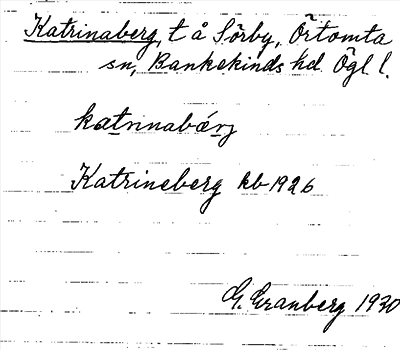 Katrinaberg, t å Sörby, Örtomta
sn, Bankekinds hd. Ögl l.
katrinabærj
Katrineberg kb 1926
G. Granberg 1930